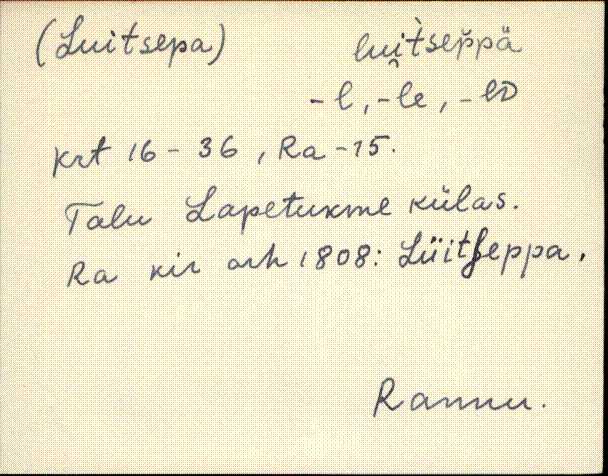 (Luitsepa) lui̯t̀sep̆pä
-l, -le, -lᴅ
Krt 16-36, Ra-15.
Talu Lapetukme külas.
Ra kir arh 1808: Lüitſeppa.
Rannu.